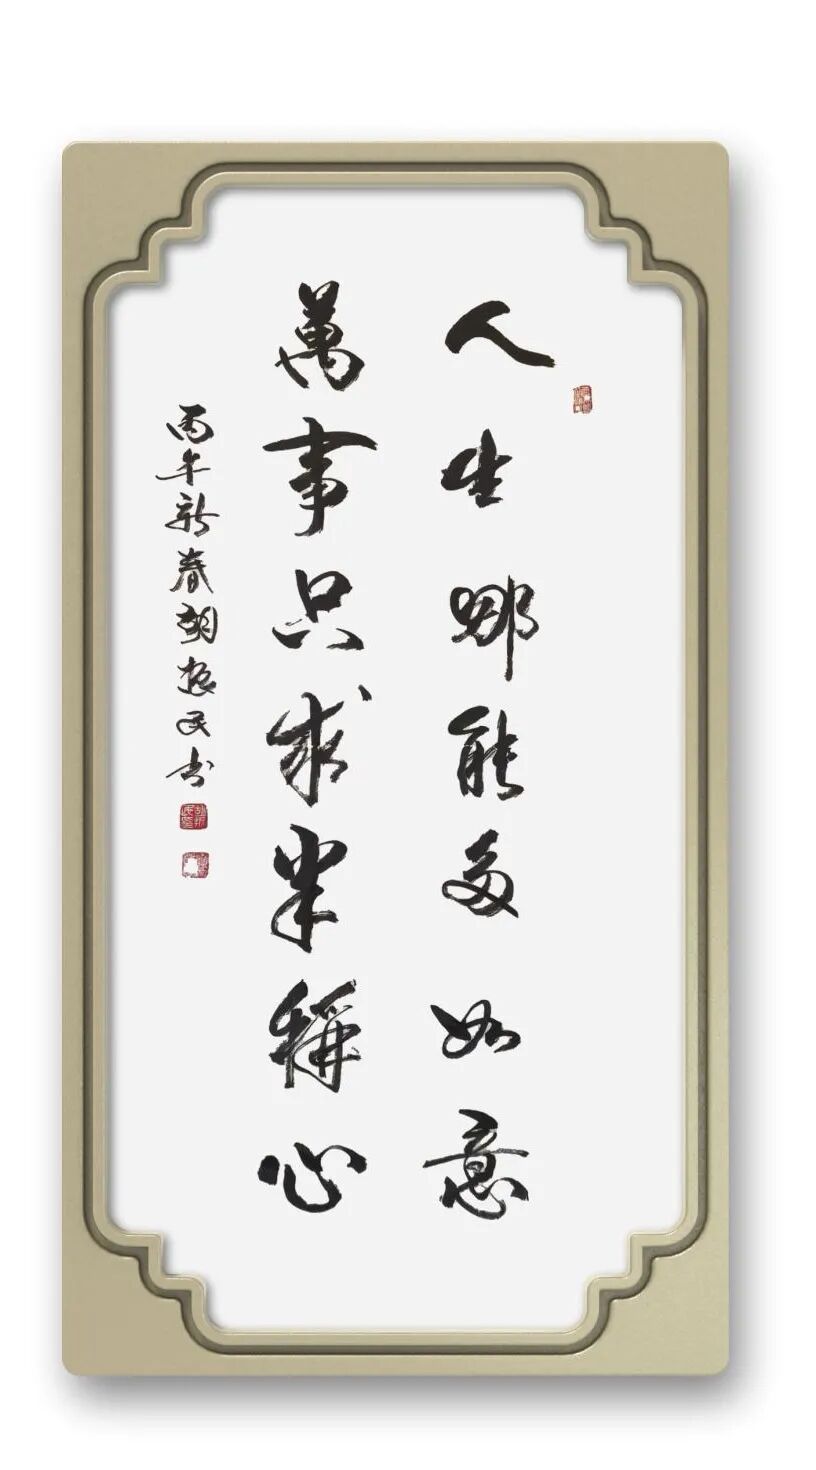 人生哪能多如意
萬事只求半稱心
丙午新春胡振民书